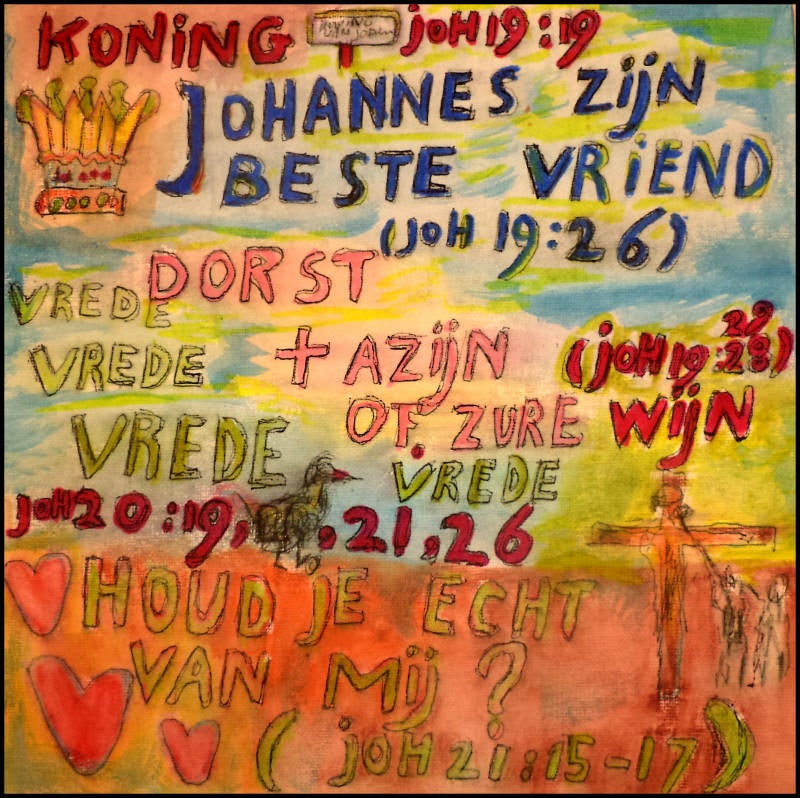 KONING JOH 19:19
JOHANNES ZIJN
BESTE VRIEND
(JOH 19:26)
DORST
VREDE
VREDE + AZIJN (JOH 19:28)
29
OF ZURE WIJN
VREDE
VREDE
JOH 20:19, ,21,26
HOUD JE ECHT
VAN MIJ?
(JOH 21:15-17)